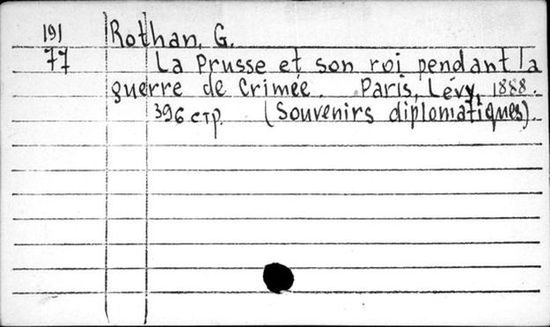 191
77
Rothan, G.
La Prusse et son roi pendant la
guerre de Crimée. Paris, Lévy, 1888.
396 стр. (Souvenirs diplomatiques).